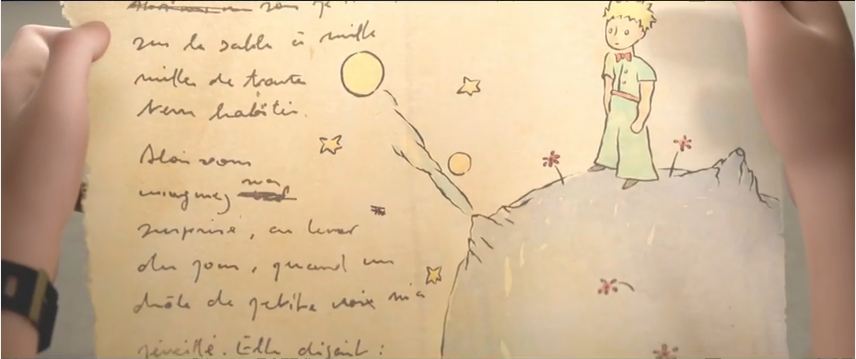 sur le sable à mille
milles de toute
terre habitée.
Alors vous
imaginez ma
surprise, au lever
du jour, quand une
drôle de petite voix m'a
réveillé. Elle disait :